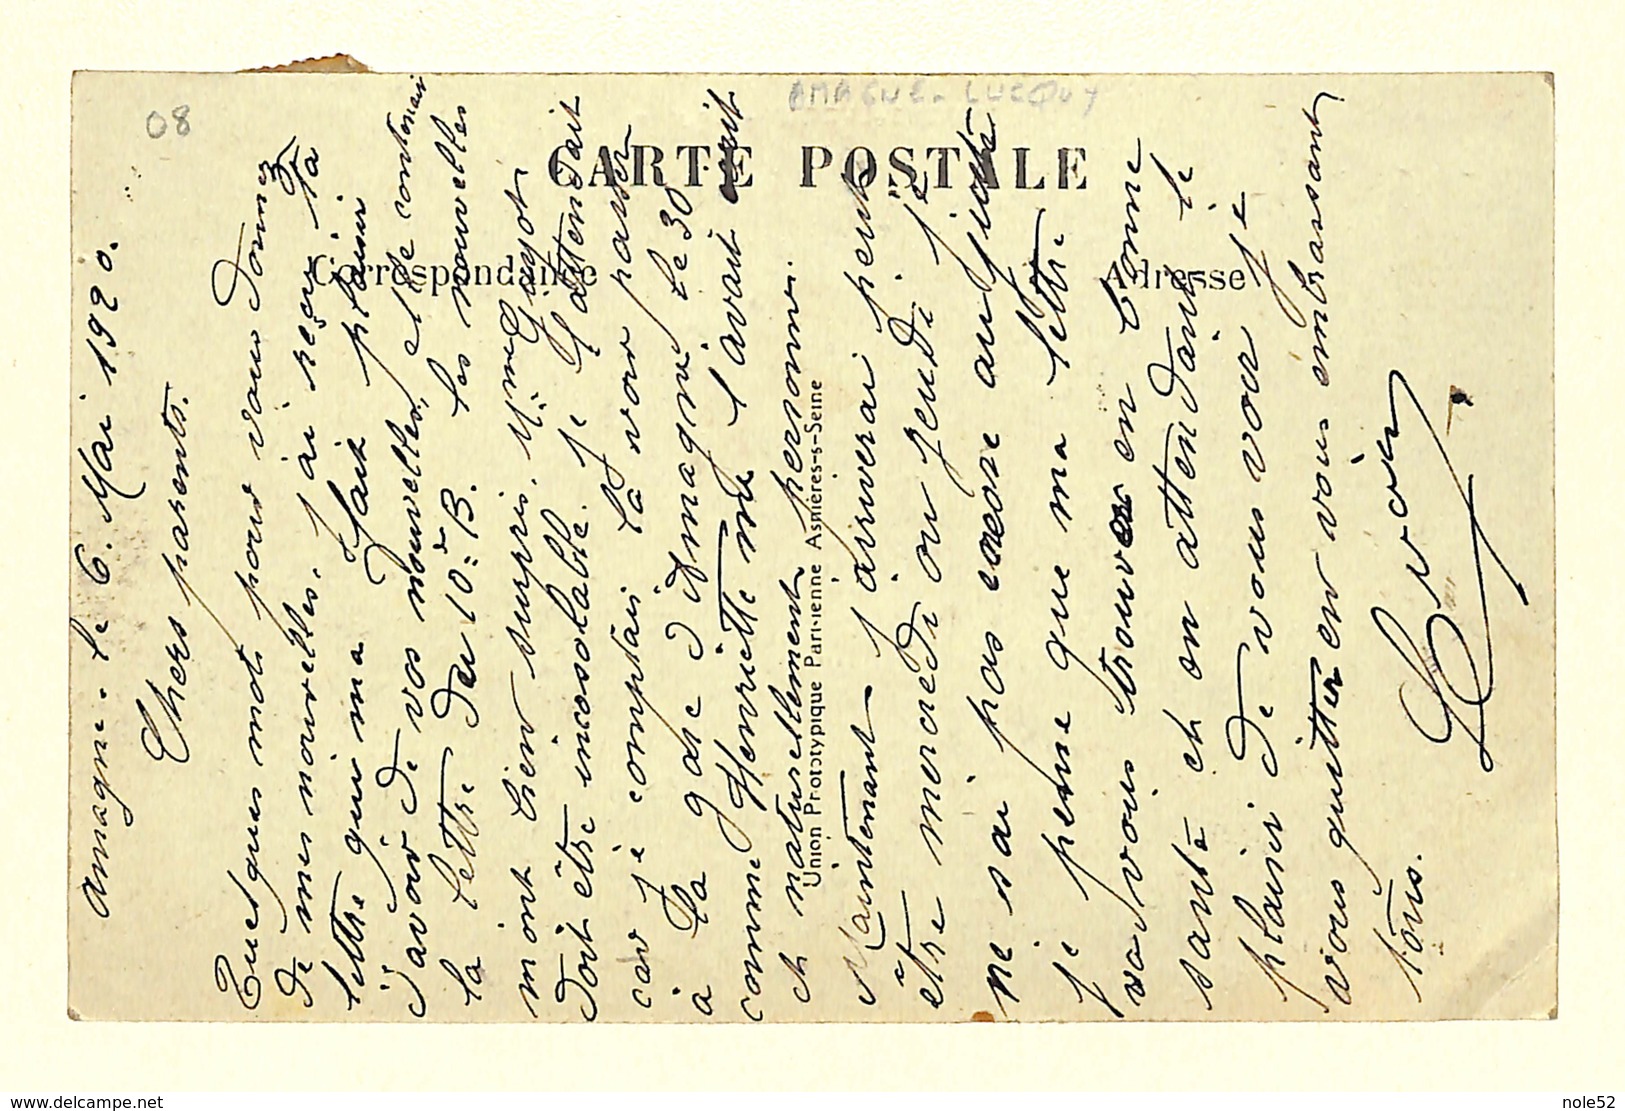 08
AMAGNE-LUCQUY
CARTE POSTALE
Correspondance
Adresse
Union Prototypique Parisienne Asnières-s-Seine
Amagne. le 6. Mai 1920.
Chers parents.
Quelques mots pour vous donner
de mes nouvelles, j'ai reçu ta
lettre qui ma fait plaisir
d'avoir de vos nouvelles, et le contenair
la lettre du 10è B. les nouvelles
mont bien surpris. Mme Guyot
doit être incosolable. je l'attendait
car je comptais la voir passer
à la gare d'Amagne le 30
comme Henriette me l'avait écrit
et naturellement personne.
Maintenant j'arriverai peut
être mercredi ou jeudi je
ne sai pas encore au juste
je pense que ma lettre
va vous trouver en bonne
santé et en attendant le
plaisir de vous voir je
vous quitter en vous embrassant
tous.
nole52
www.delcampe.net